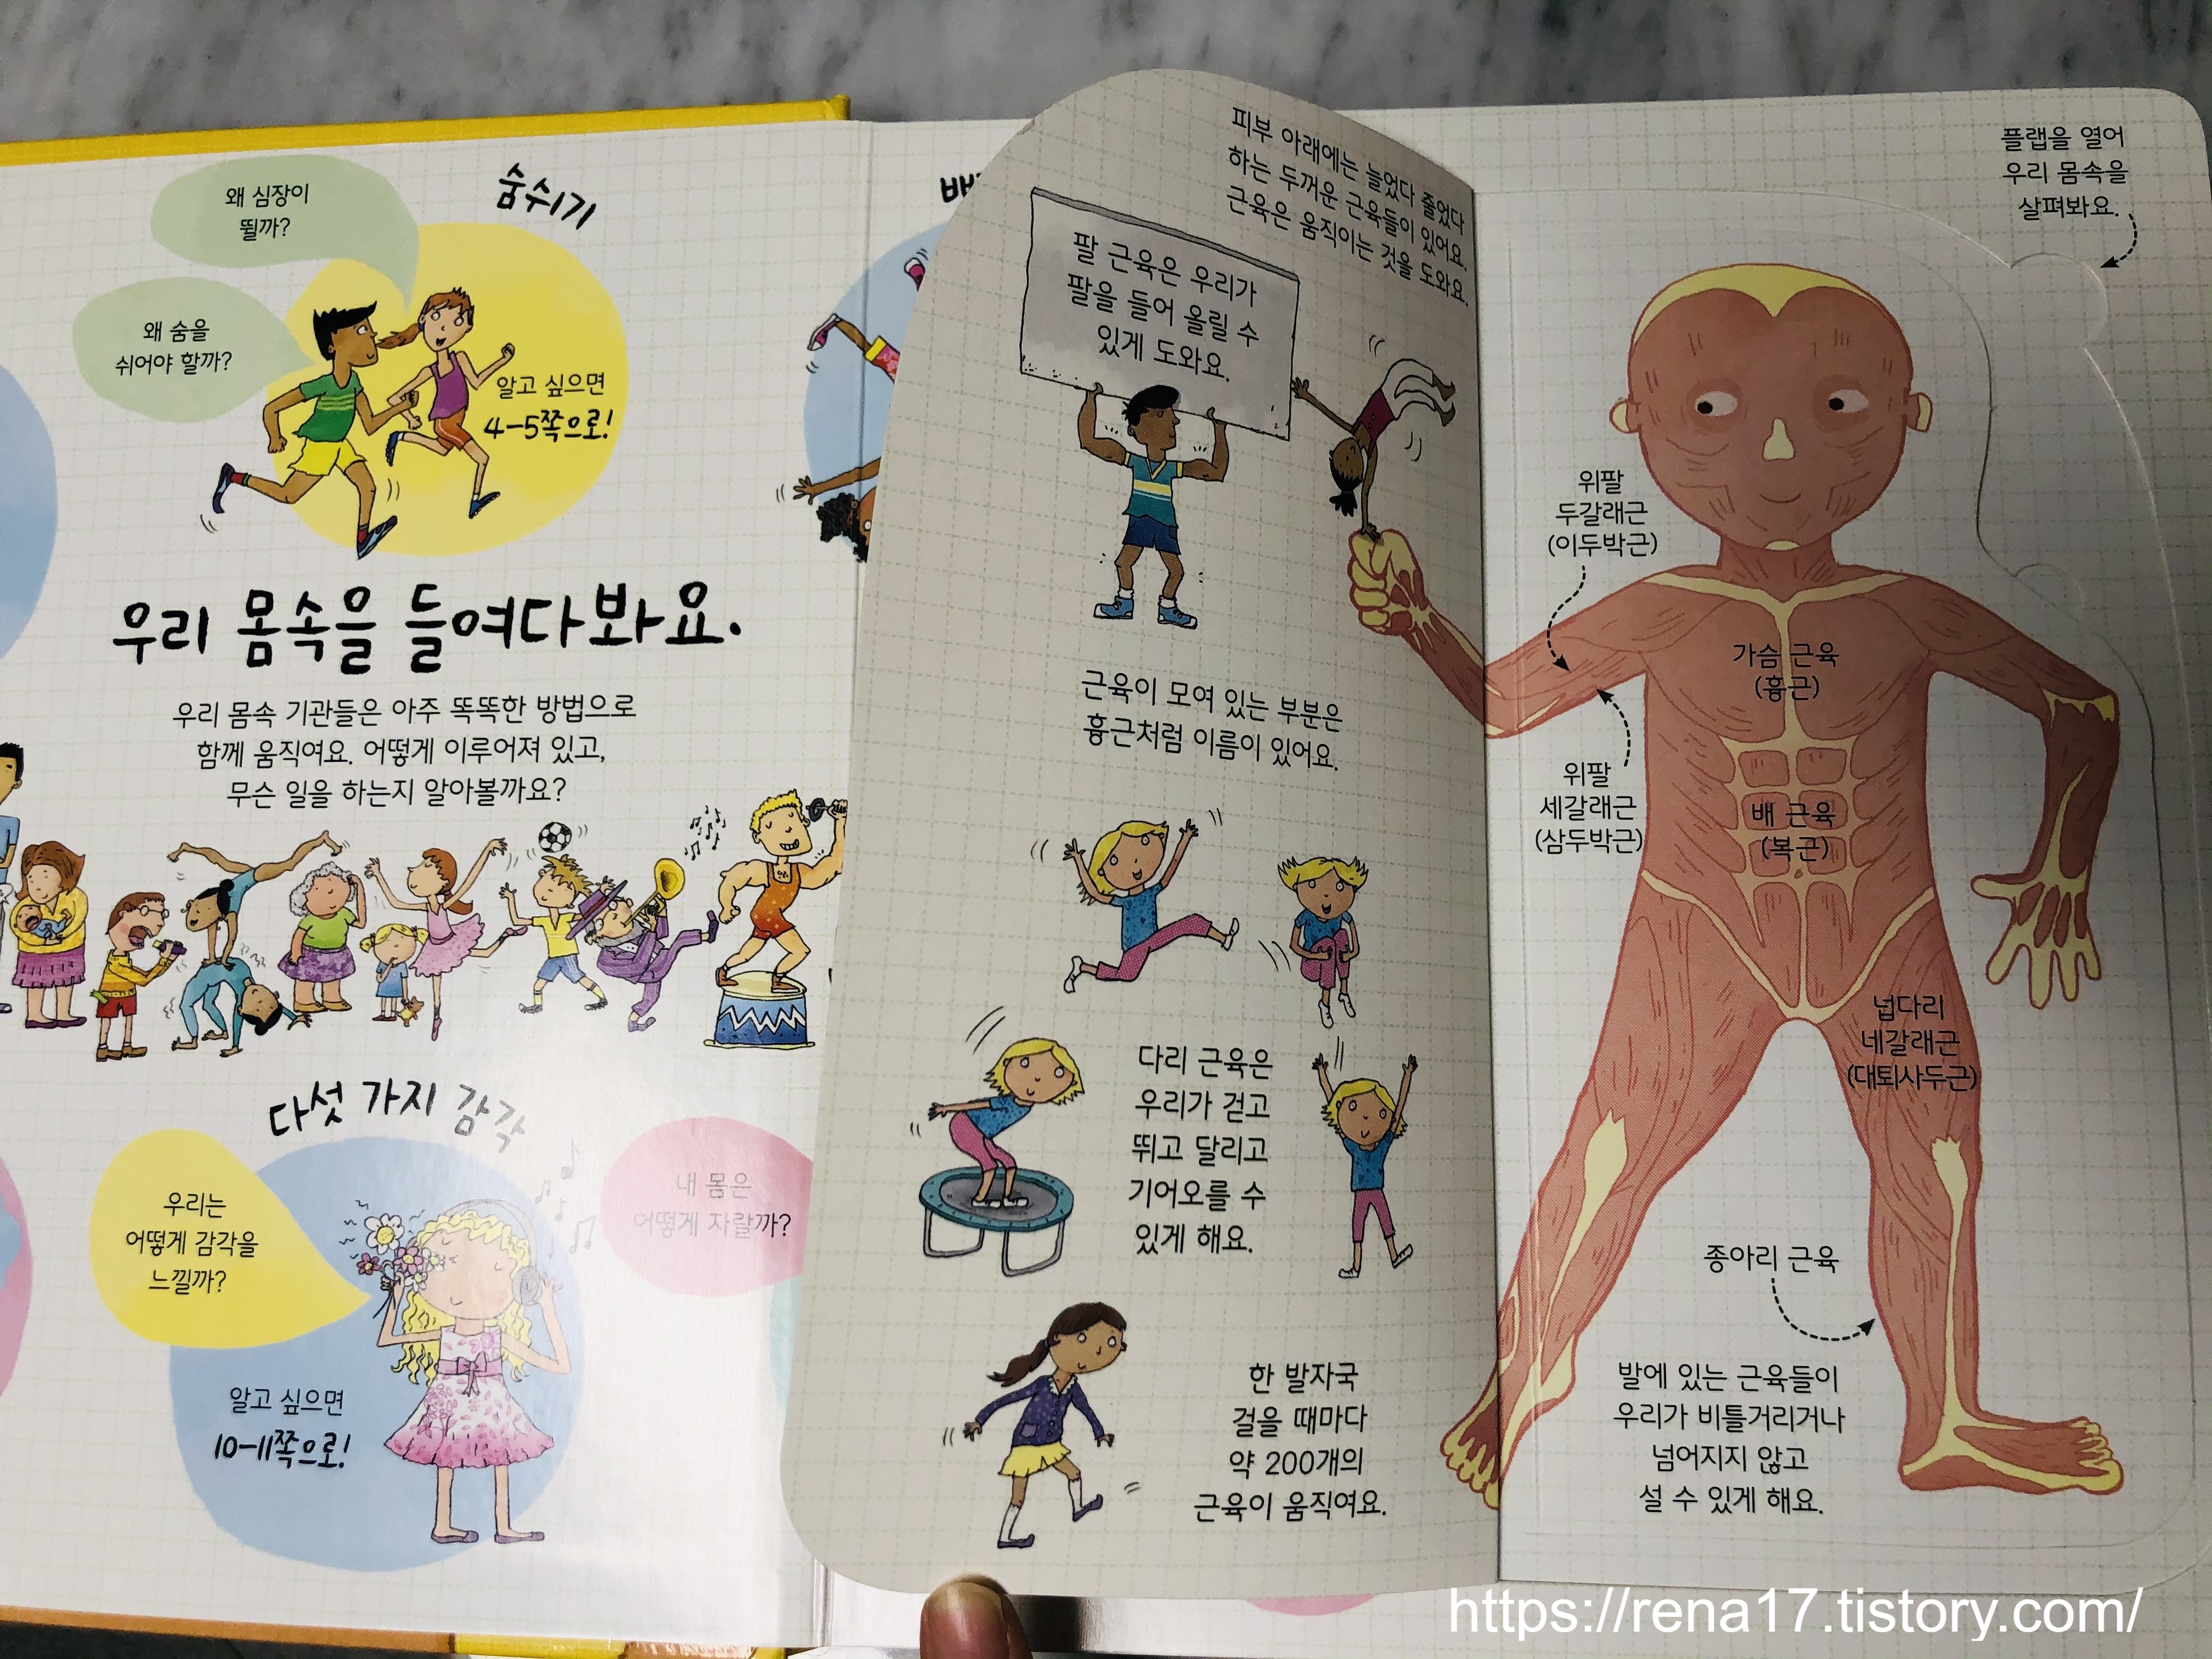 왜 심장이
뛸까?
숨쉬기
왜 숨을
쉬어야 할까?
알고 싶으면
4-5쪽으로!
우리 몸속을 들여다봐요.
우리 몸속 기관들은 아주 똑똑한 방법으로
함께 움직여요. 어떻게 이루어져 있고,
무슨 일을 하는지 알아볼까요?
다섯 가지 감각
우리는
어떻게 감각을
느낄까?
알고 싶으면
10-11쪽으로!
내 몸은
어떻게 자랄까?
피부 아래에는 늘었다 줄었다
하는 두꺼운 근육들이 있어요.
근육은 움직이는 것을 도와요.
팔 근육은 우리가
팔을 들어 올릴 수
있게 도와요.
근육이 모여 있는 부분은
흉근처럼 이름이 있어요.
다리 근육은
우리가 걷고
뛰고 달리고
기어오를 수
있게 해요.
한 발자국
걸을 때마다
약 200개의
근육이 움직여요.
플랩을 열어
우리 몸속을
살펴봐요.
위팔
두갈래근
(이두박근)
가슴 근육
(흉근)
위팔
세갈래근
(삼두박근)
배 근육
(복근)
넙다리
네갈래근
(대퇴사두근)
종아리 근육
발에 있는 근육들이
우리가 비틀거리거나
넘어지지 않고
설 수 있게 해요.
https://rena17.tistory.com/